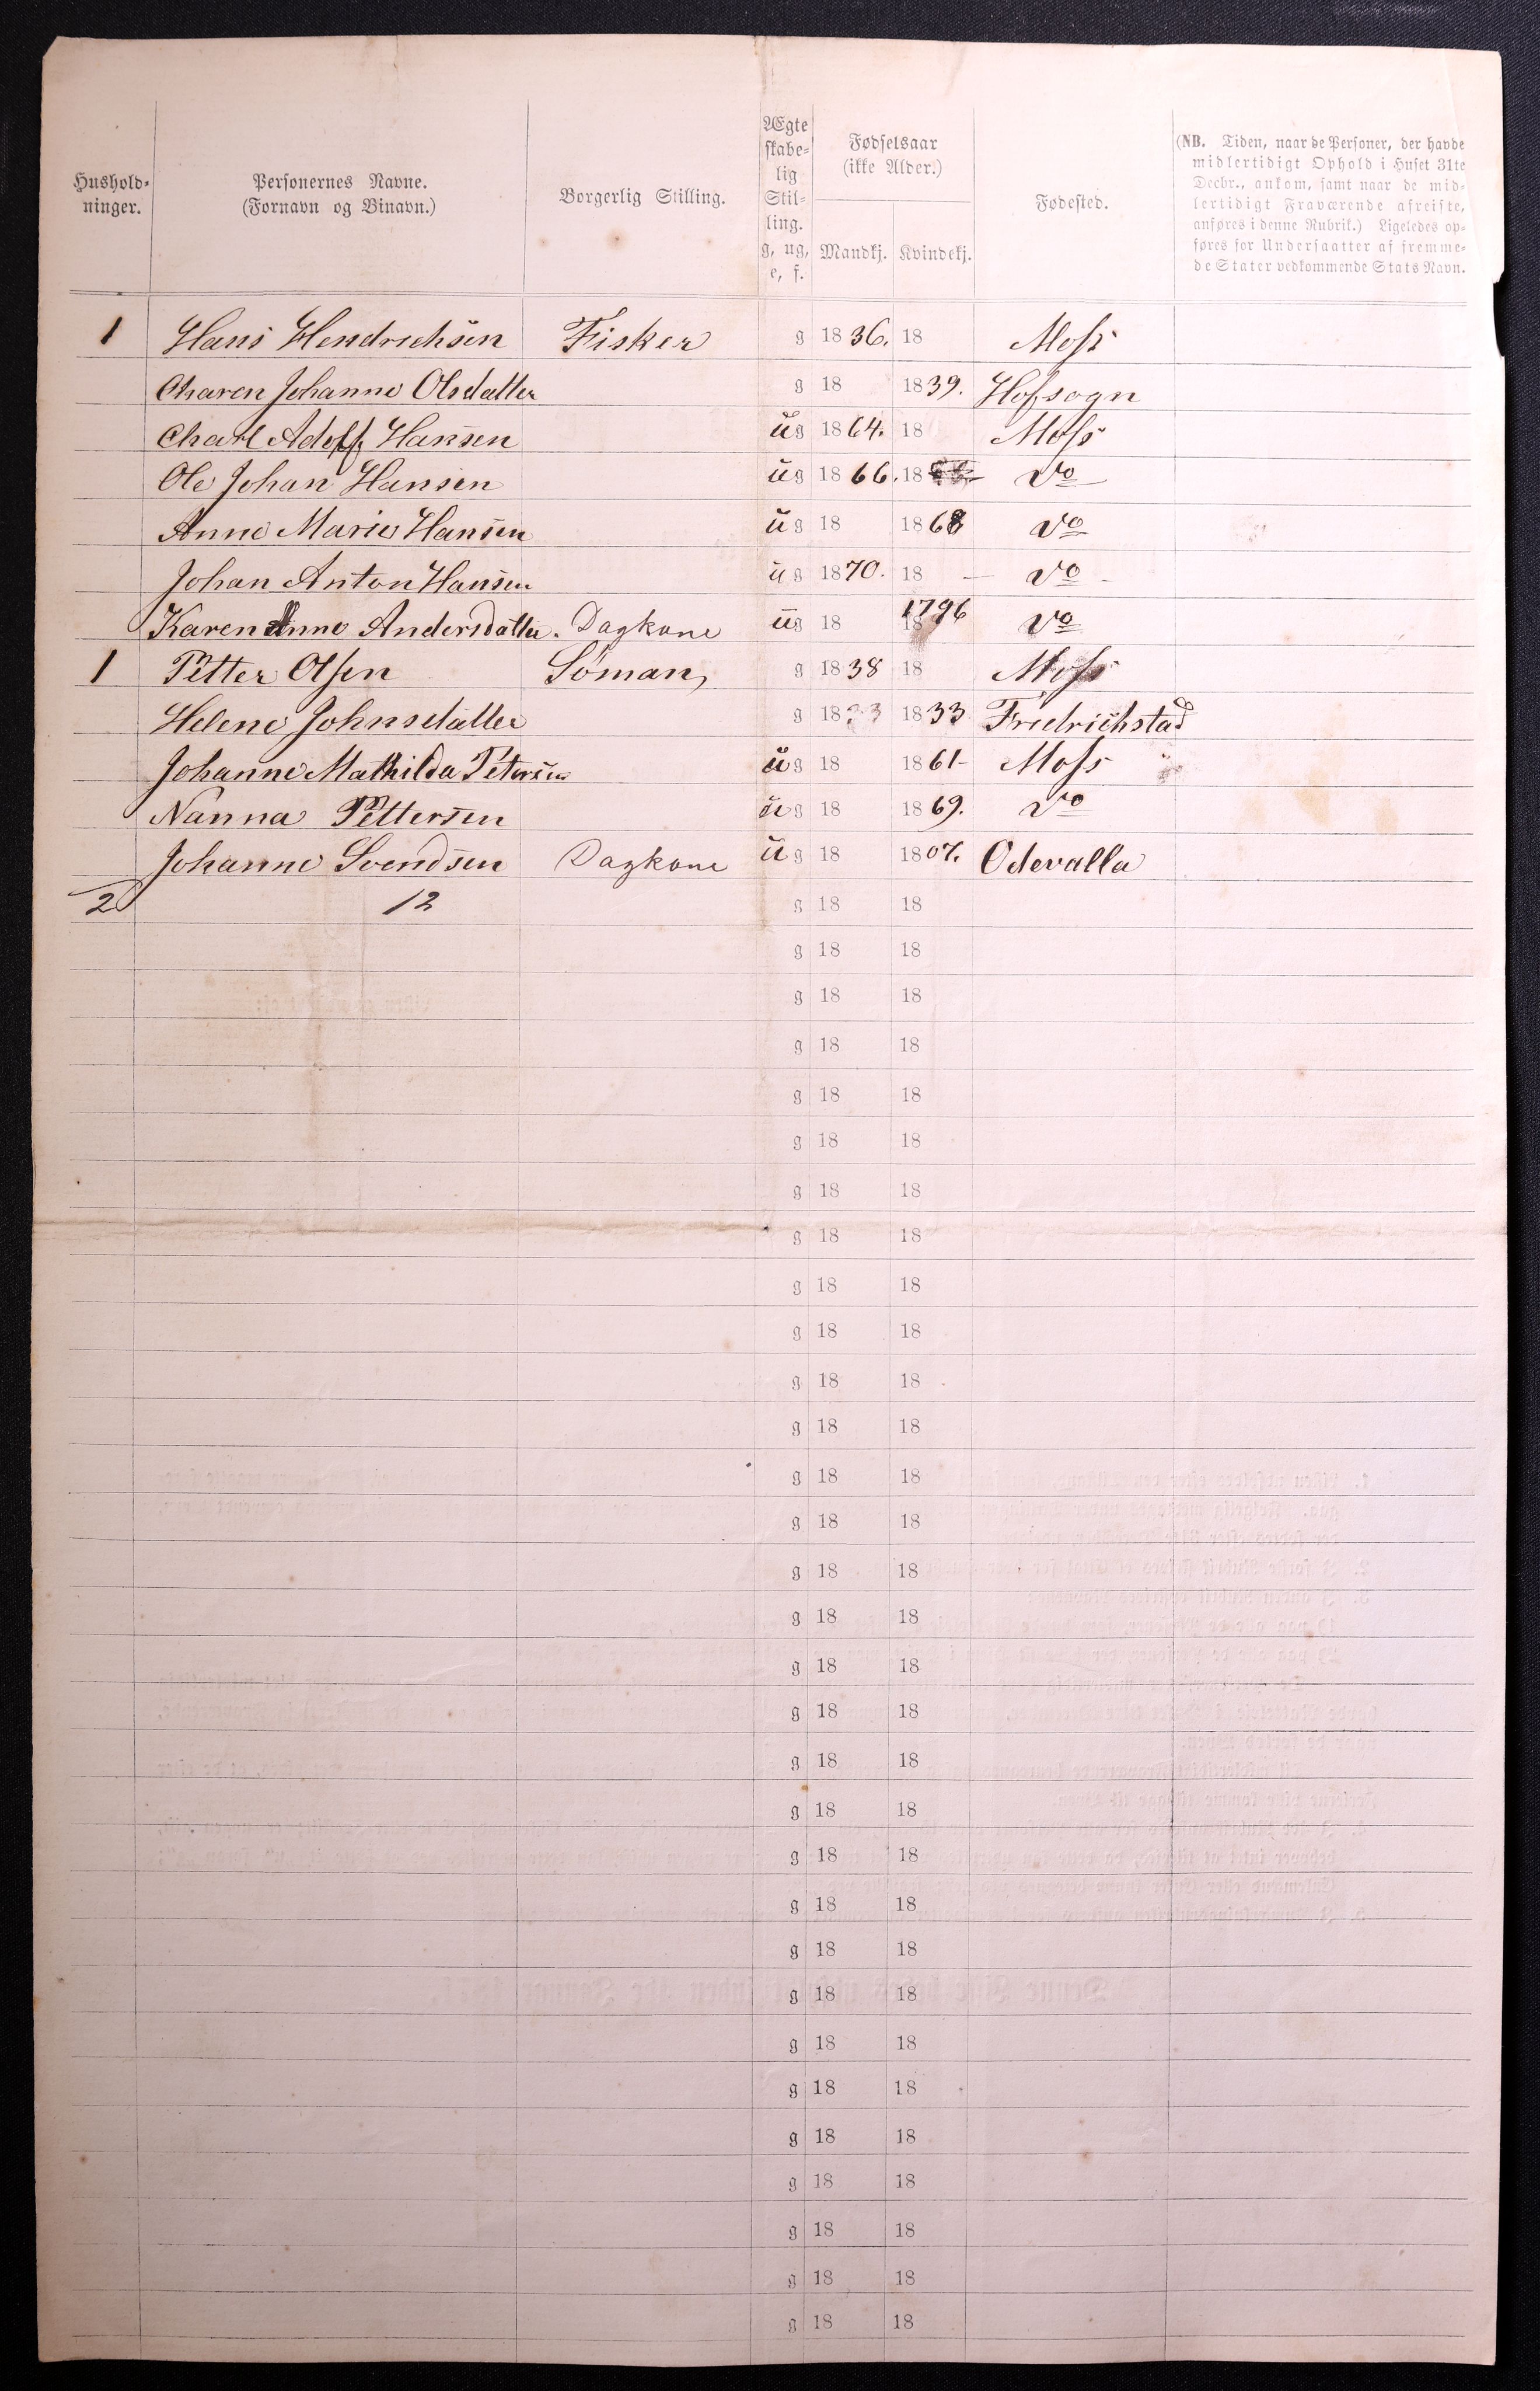 Hushold-
ninger.
Personernes Navne.
(Fornavn og Binavn.)
Borgerlig Stilling.
Ægte
skabe-
lig
Stil-
ling.
g, ug,
e, f.
Fødselsaar
(ikke Alder.)
Mandkj. Kvindekj.
Fødested.
(NB. Tiden, naar de Personer, der havde
midlertidigt Ophold i Huset 31te
Decbr., ankom, samt naar de mid-
lertidigt Fraværende afreiste,
anføres i denne Rubrik.) Ligeledes op-
føres for Undersaatter af fremme-
de Stater vedkommende Stats Navn.
1 Hans Hendrichsen Fisker g 1836. 18 Moss
Charen Johanne Olsdatter g 18 1839. Hofsogn
Charl Adolf Hansen ug 1864. 18 Moss
Ole Johan Hansen ug 1866. 18 Do
Anne Marie Hansen ug 18 1868 Do
Johan Anton Hansen ug 1870. 18 Do
Karen Anne Andersdatter. Dagkone ug 18 18 1796 Do
1 Petter Olsen Söman, g 1838 18 Moss
Helene Johnsdatter g 1833 1833 Fredrichstad
Johanne Mathilda Petersen ug 18 1861- Moss
Nanna Pettersen ug 18 1869. Do
Johanne Svendsen Dagkone ug 18 1807. Odevalla
2 12 g 18 18
g 18 18
g 18 18
g 18 18
g 18 18
g 18 18
g 18 18
g 18 18
g 18 18
g 18 18
g 18 18
g 18 18
g 18 18
g 18 18
g 18 18
g 18 18
g 18 18
g 18 18
g 18 18
g 18 18
g 18 18
g 18 18
g 18 18
g 18 18
g 18 18
g 18 18
g 18 18
g 18 18
g 18 18
g 18 18
g 18 18